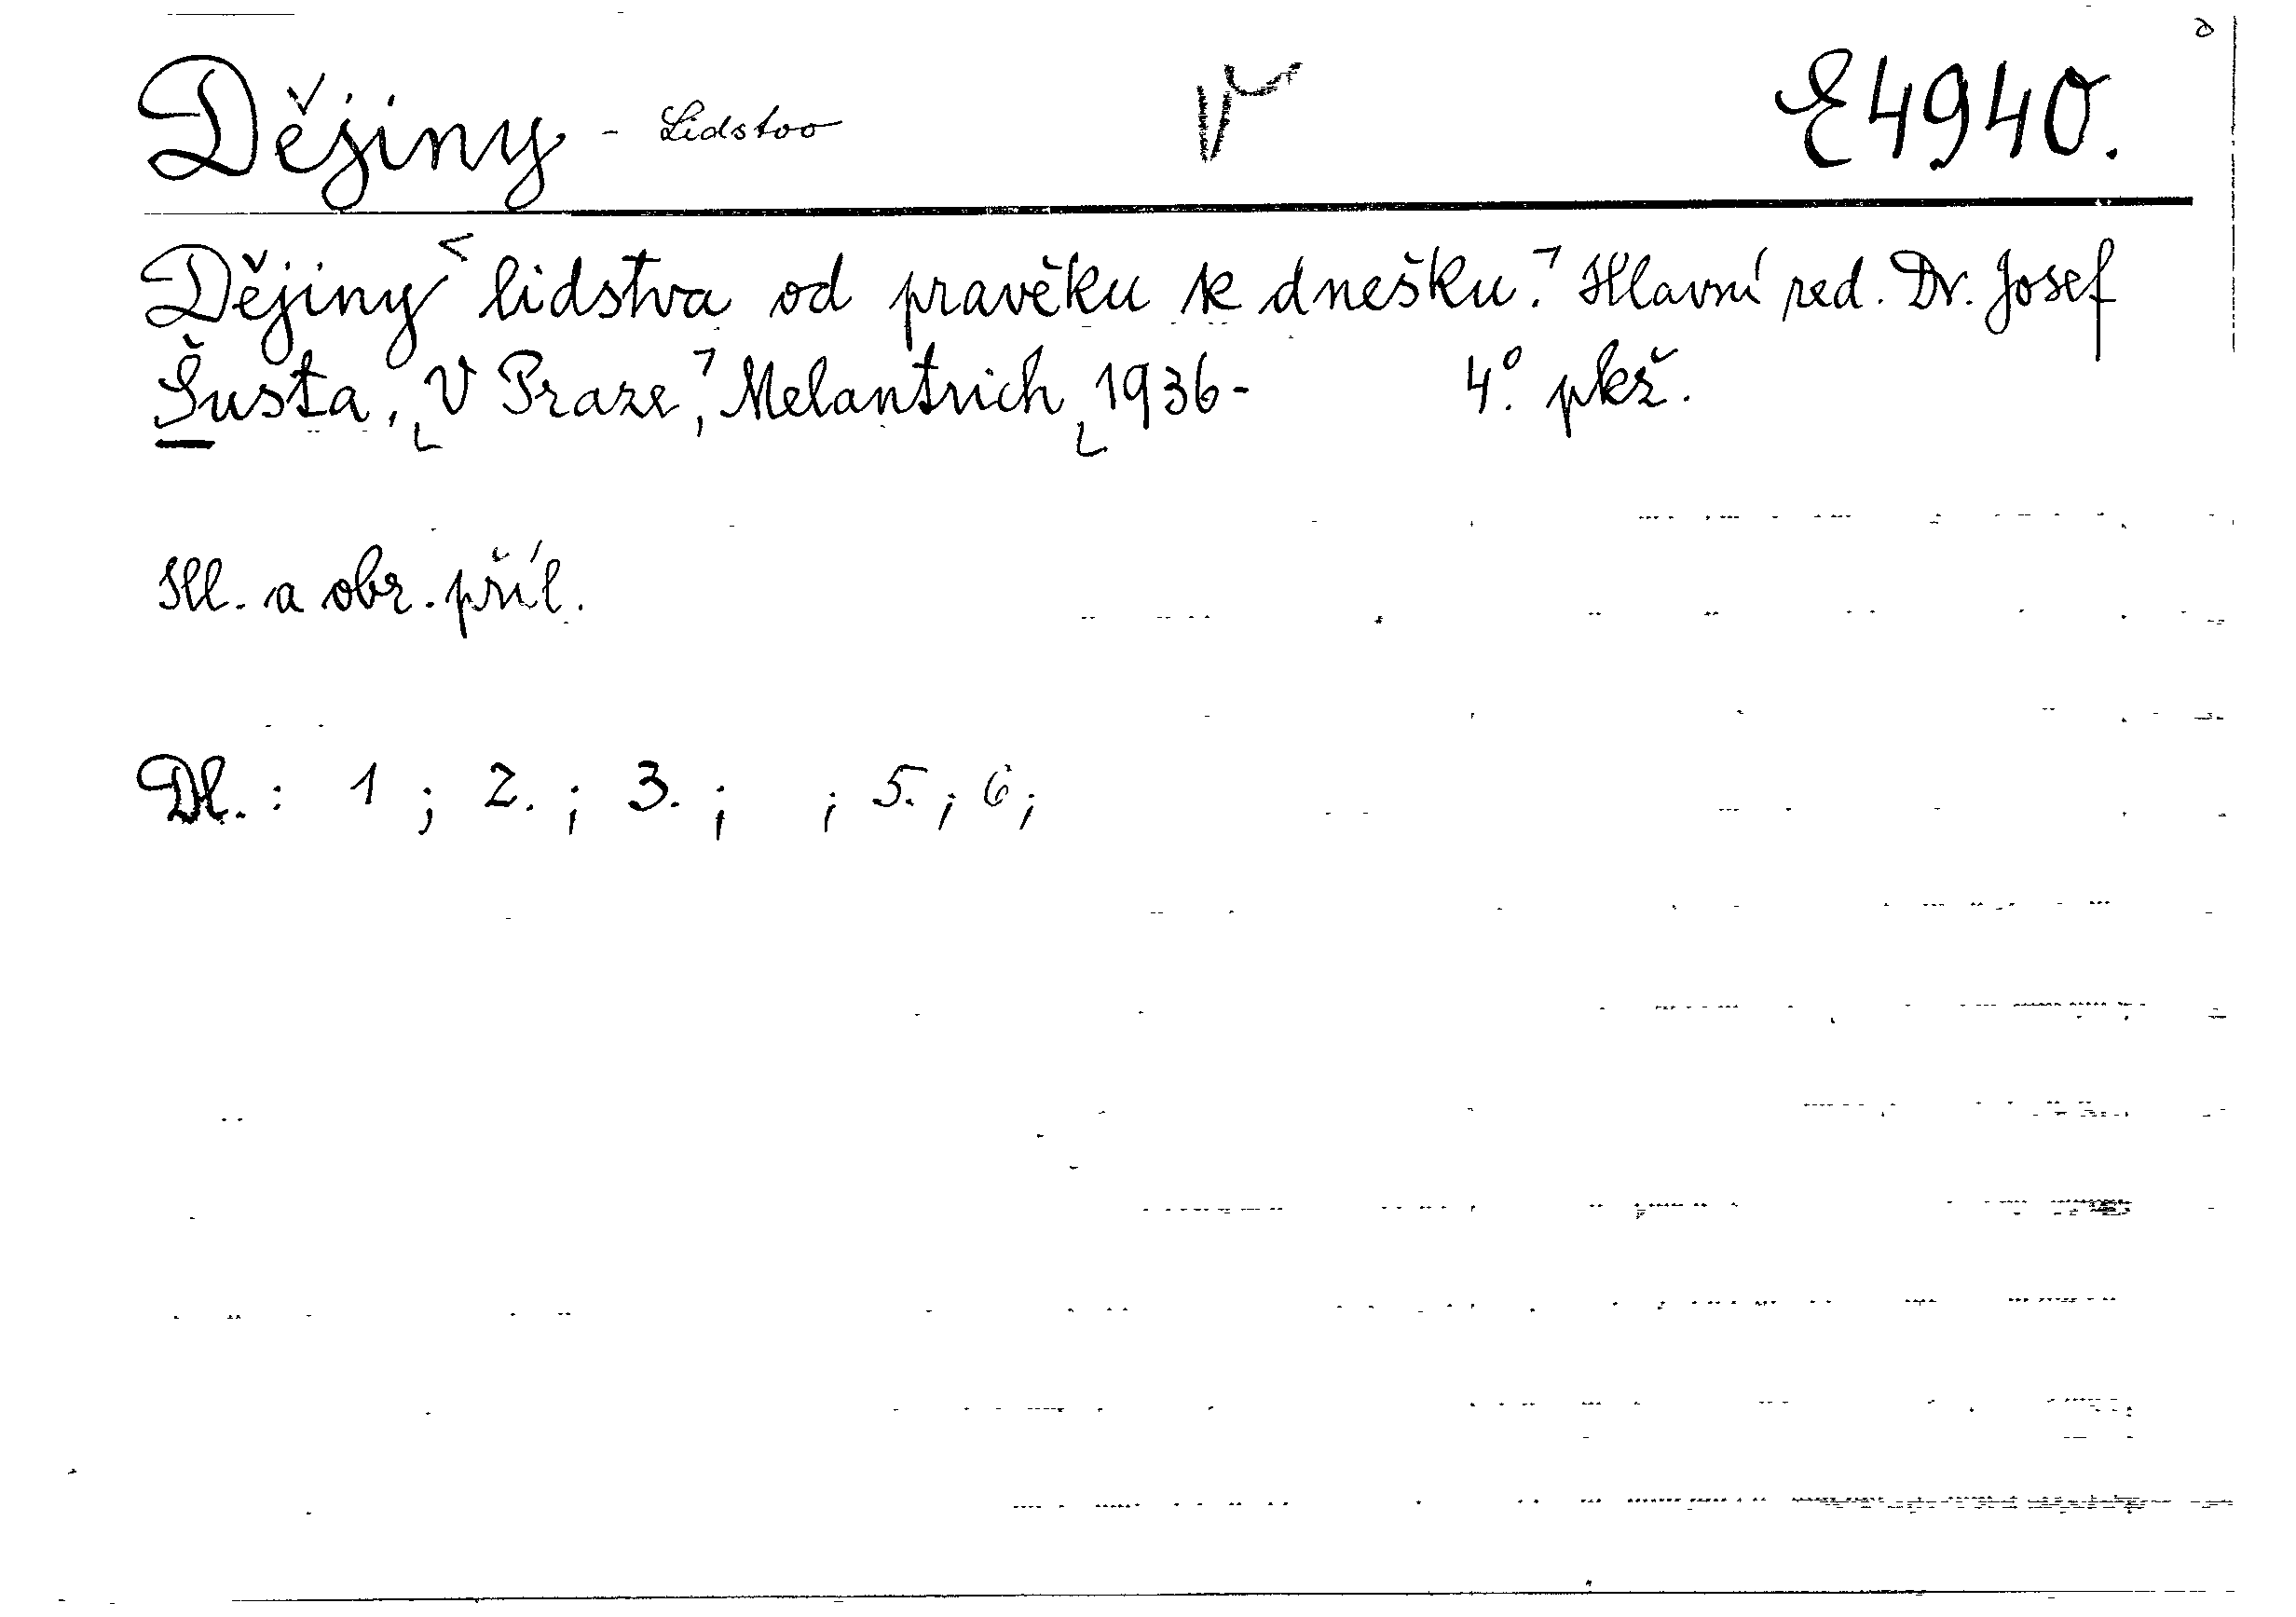 Dějiny - Lidstvo V E4940.
Dějiny lidstva od pravěku k dnešku. Hlavní red. Dr. Josef
Šusta, V Praze, Melantrich, 1936- 4° pkž.
Ill. a obr. příl.
Dl.: 1 ; 2. ; 3. ; ; 5. ; 6 ;